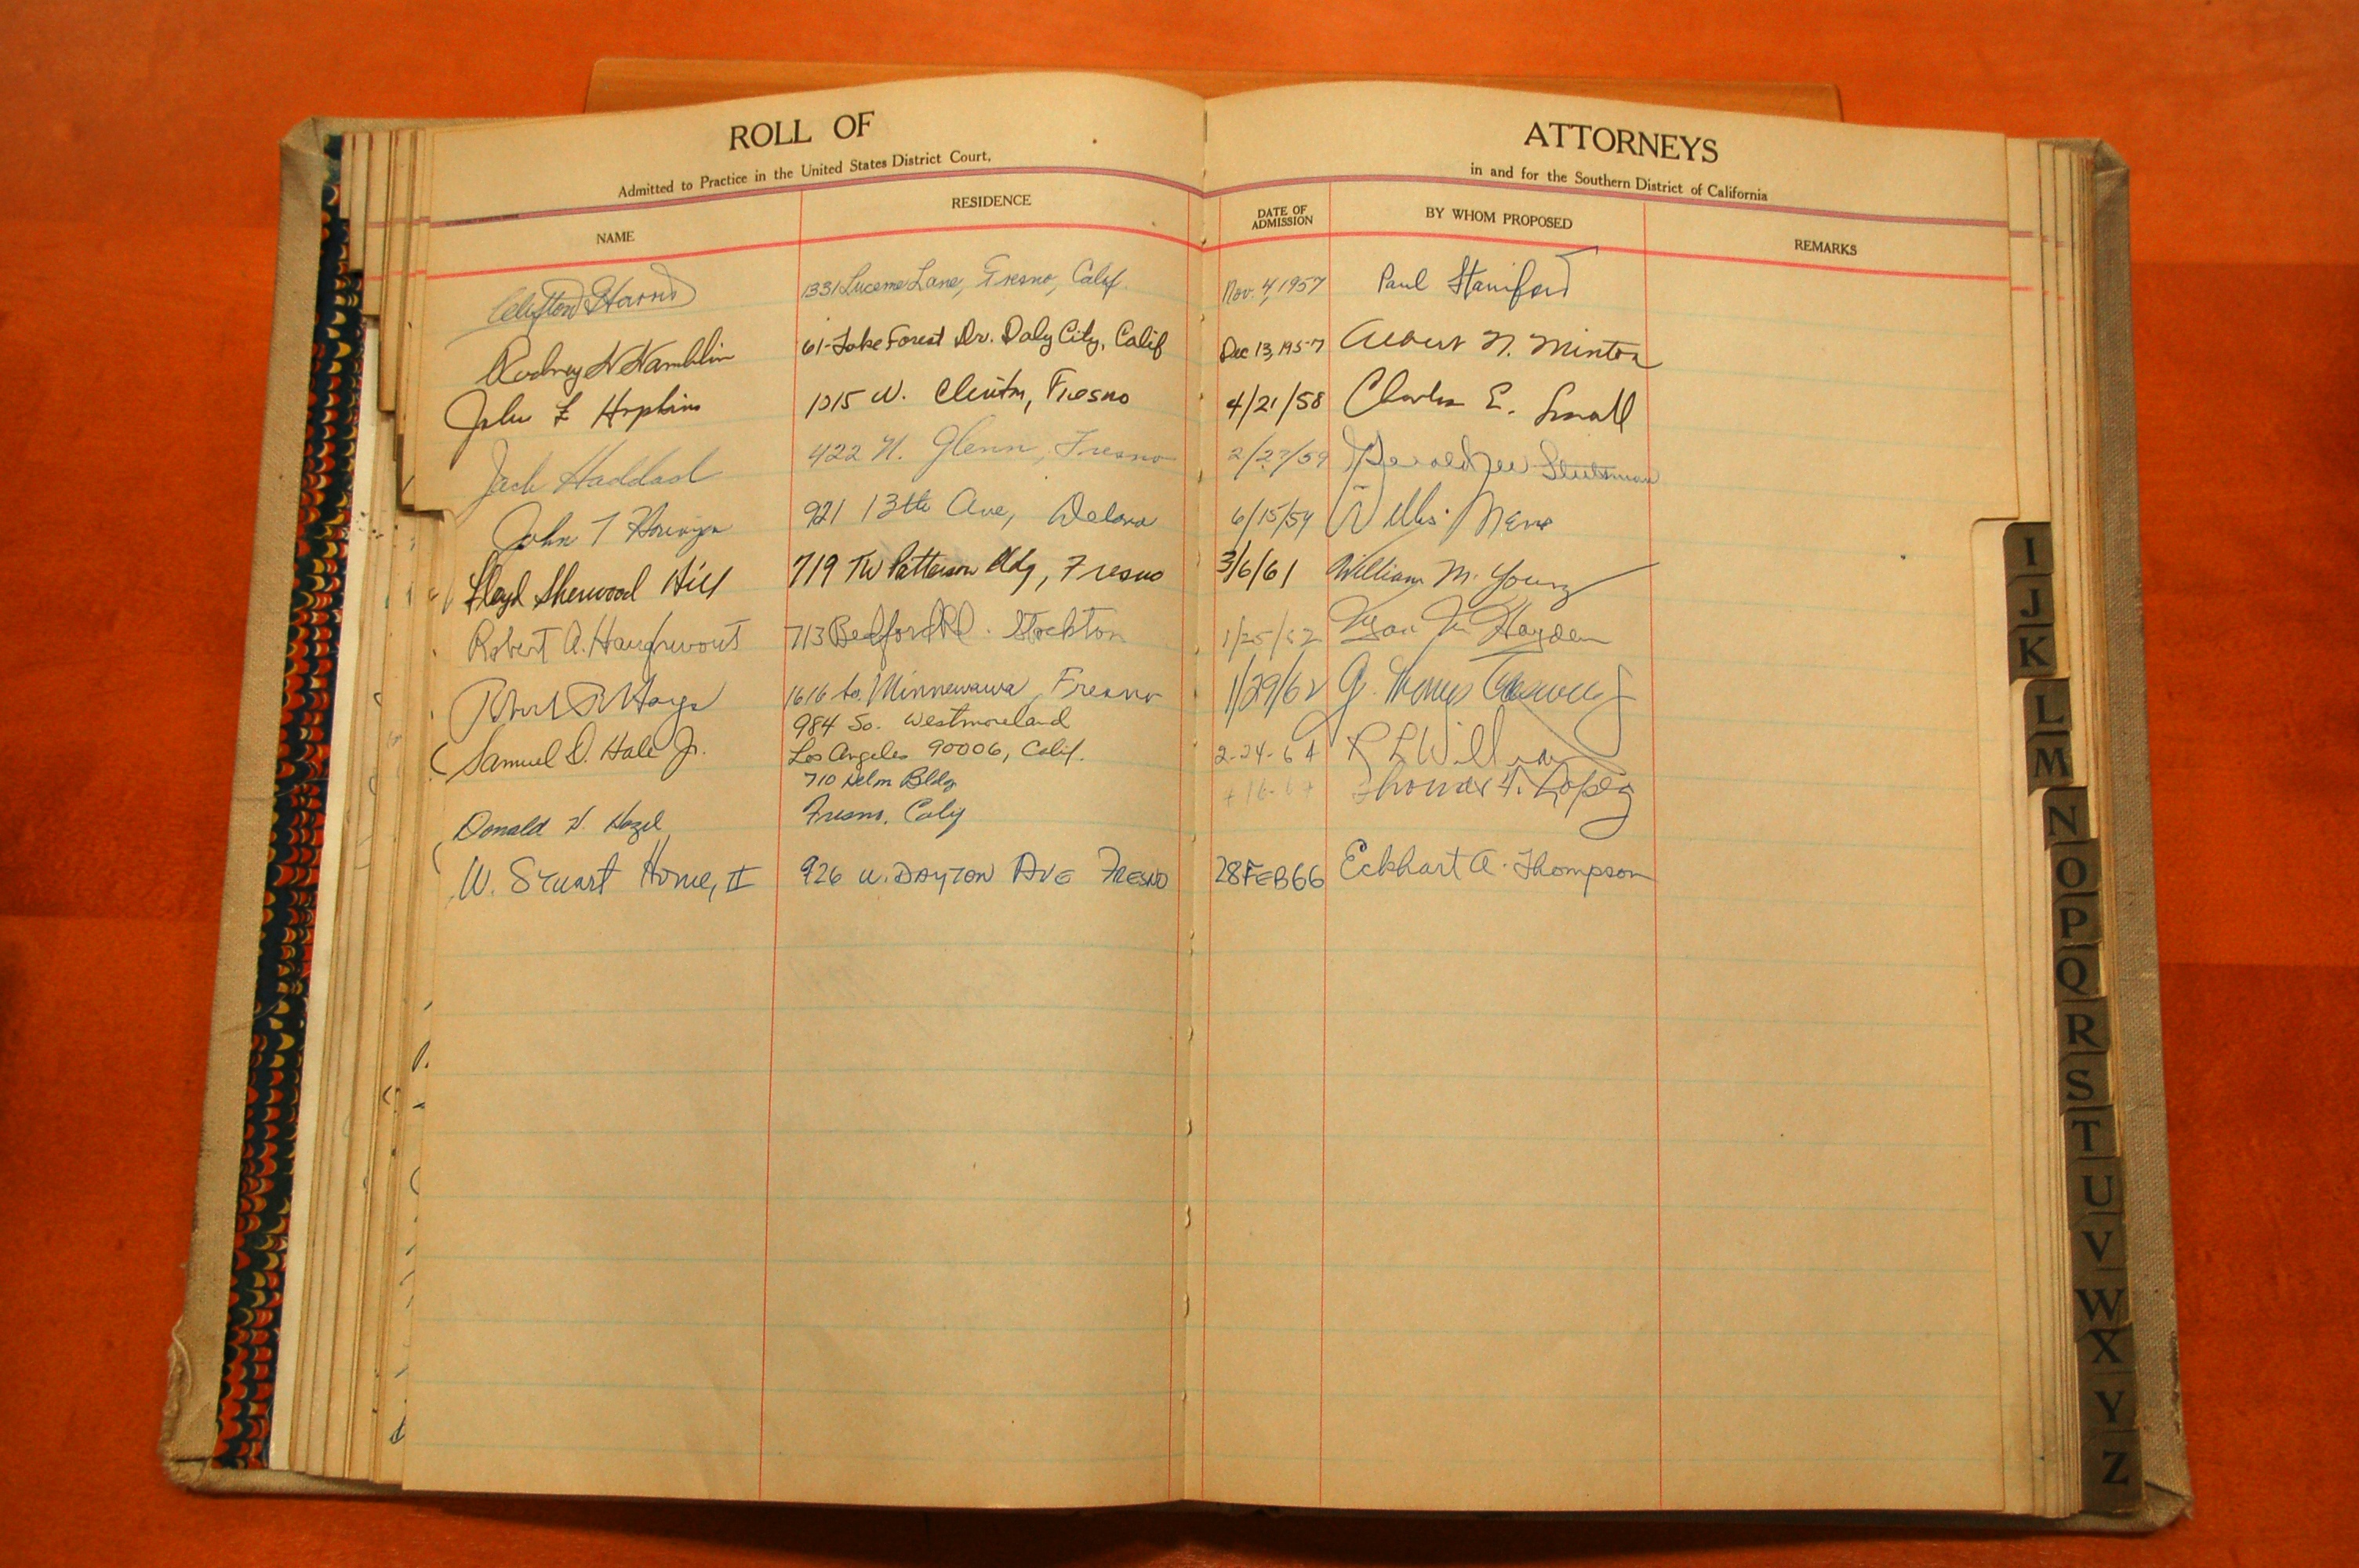 ROLL OF ATTORNEYS
Admitted to Practice in the United States District Court, in and for the Southern District of California
NAME RESIDENCE DATE OF ADMISSION BY WHOM PROPOSED REMARKS
Clifton Harris 1331 Lucerne Lane, Fresno, Calif. Nov. 4, 1957 Paul Staniford
Rodney H Hamblin 61-Lake Forest Dr. Daly City, Calif Dec 13, 1957 Albert N. Minton
John F Hopkins 1015 W. Clinton, Fresno 4/21/58 Charles E. Small
Jack Haddad 422 N. Glenn, Fresno 2/27/59 Stutsman
John T 921 13th Ave, Delano 6/15/59 Willis
Lloyd Sherwood Hill 719 TW Patterson Bldg, Fresno 3/6/61 William M. Young
Robert A. 713 Bedford Rd. Stockton 1/25/62 Hayden
Robert Hays 1616 So. Minnewawa, Fresno 1/29/62 G. Thomas
984 So. Westmoreland
Samuel D. Hale Jr. Los Angeles 90006, Calif. 2-24-64 R L
710 Helm Bldg Thomas Lopez
Donald H. Hazel Fresno, Calif
W. Stuart Home, II 926 W. DAYTON AVE FRESNO 28 FEB 66 Eckhart A. Thompson
I
J
K
L
M
N
O
P
Q
R
S
T
U
V
W
X
Y
Z